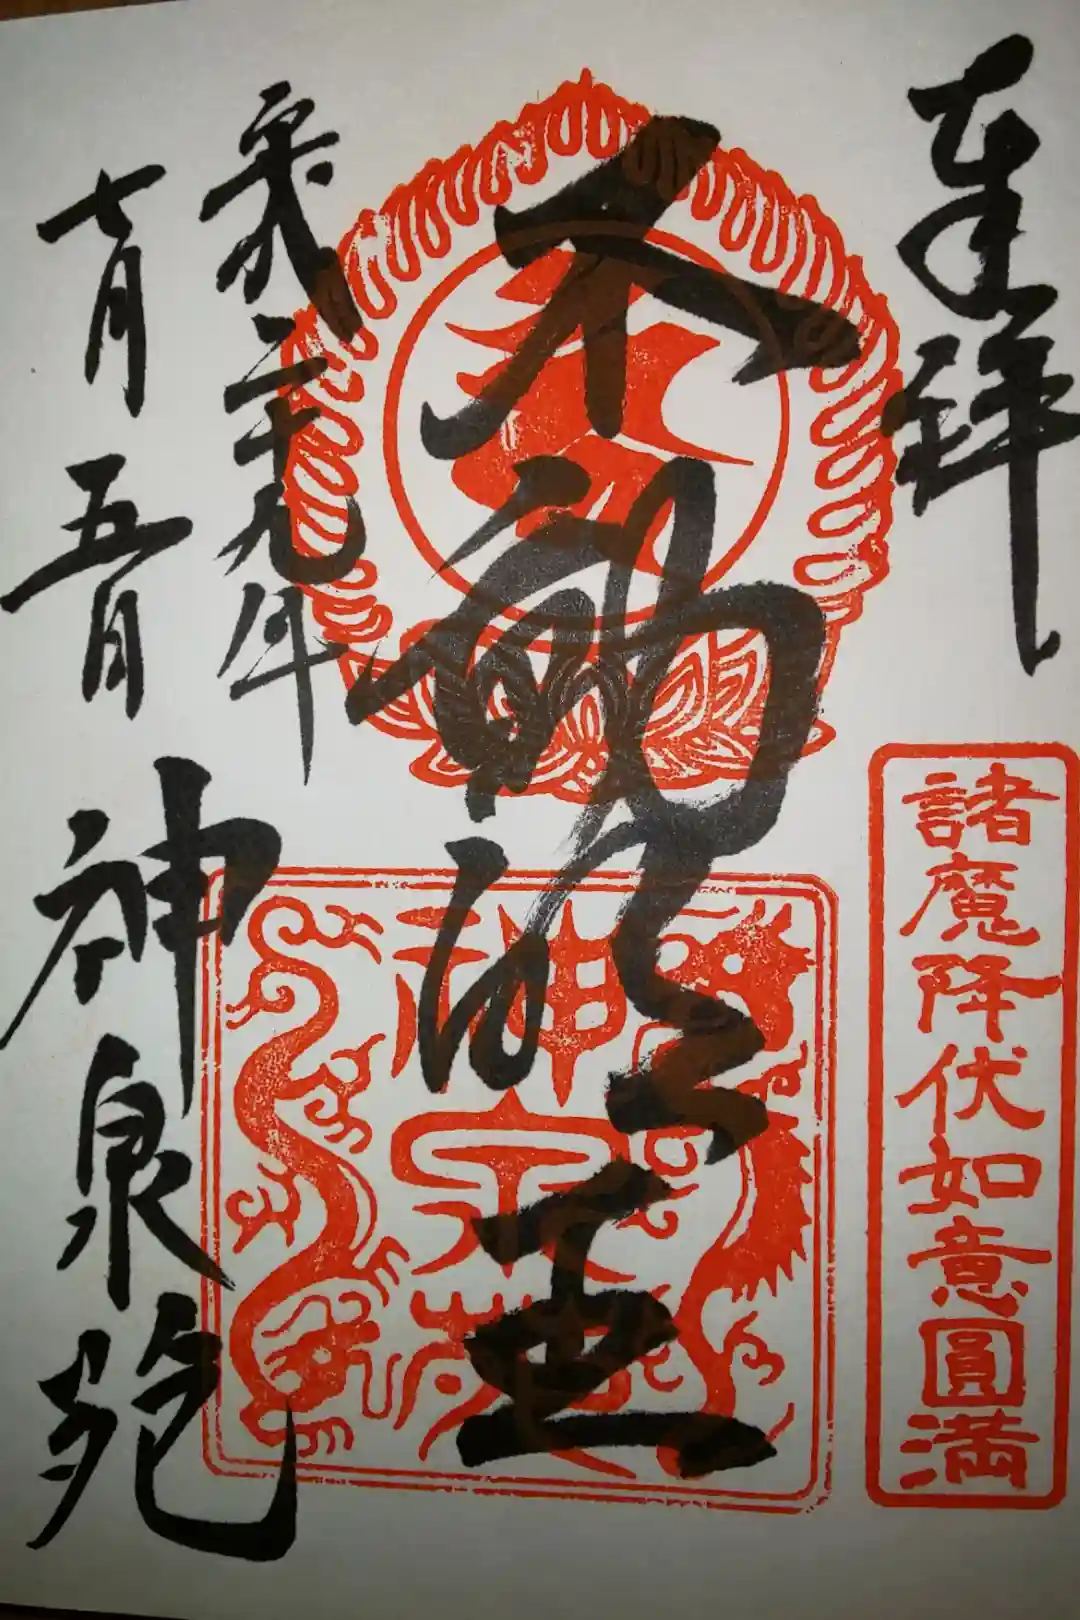 奉拝
諸魔降伏如意圓満
不動明王
神泉苑
平成二十九年
七月五日
神泉苑